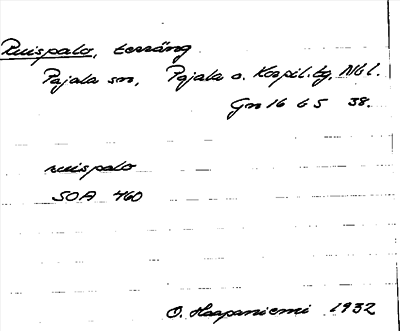 Ruispalo, terräng
Pajala sn, Pajala o. Korpil. tg, Nbl.
Gn 16 65 38.
ruispalo
SOA 460
O. Haapaniemi 1932